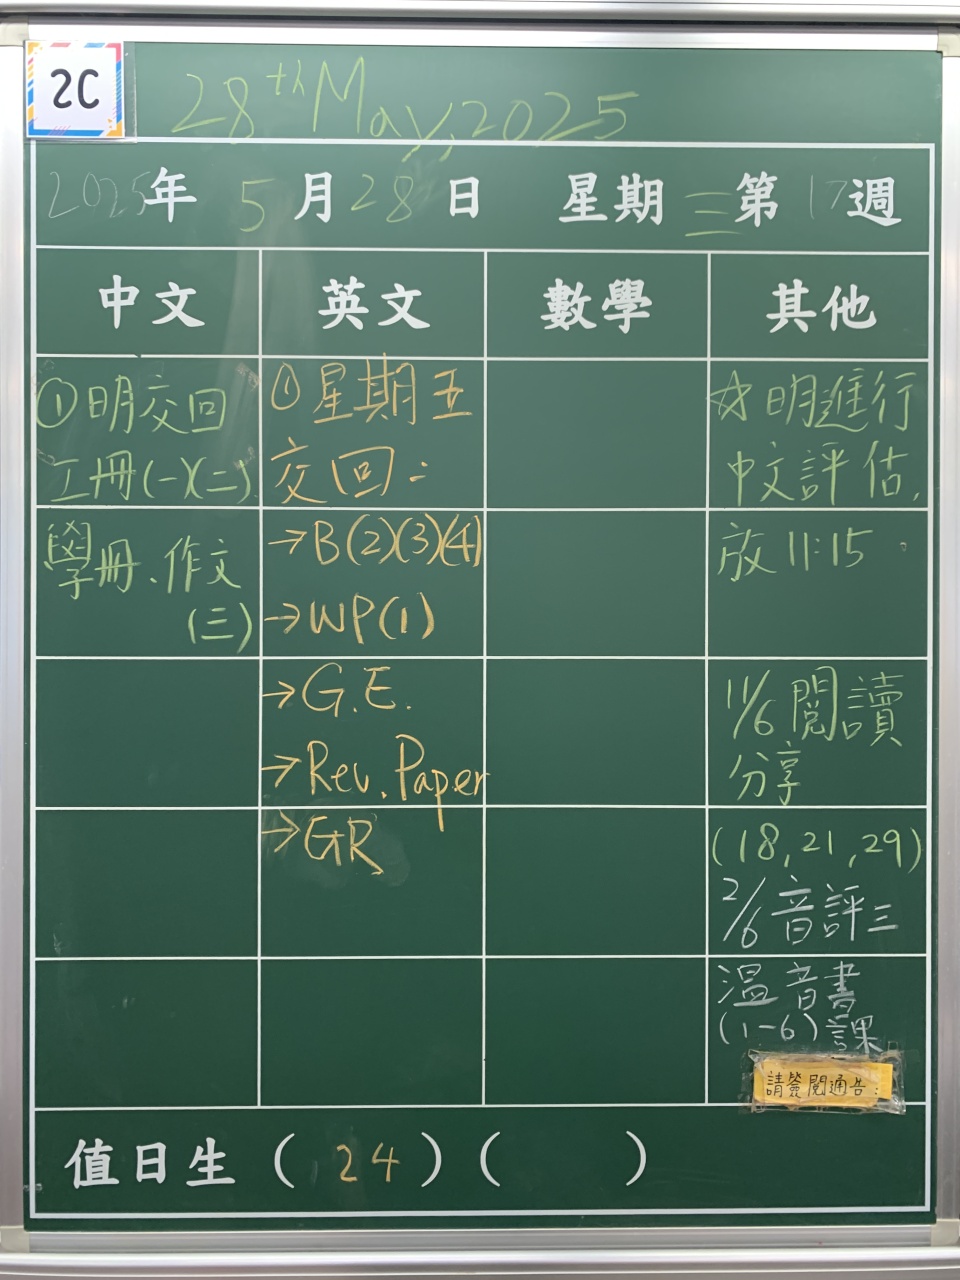 2C
28th May, 2025
2025年 5月28日 星期三第17週
中文
①明交回
工冊(一)(二)
學冊、作文
(三)
英文
①星期五
交回:
→B(2)(3)(4)
→WP(1)
→G.E.
→Rev. Paper
→GR
數學
其他
☆明進行
中文評估,
放11:15
11/6 閱讀
分享
(18,21,29)
2/6 音評三
溫音書
(1-6)課
請簽閱通告:
值日生(24)( )